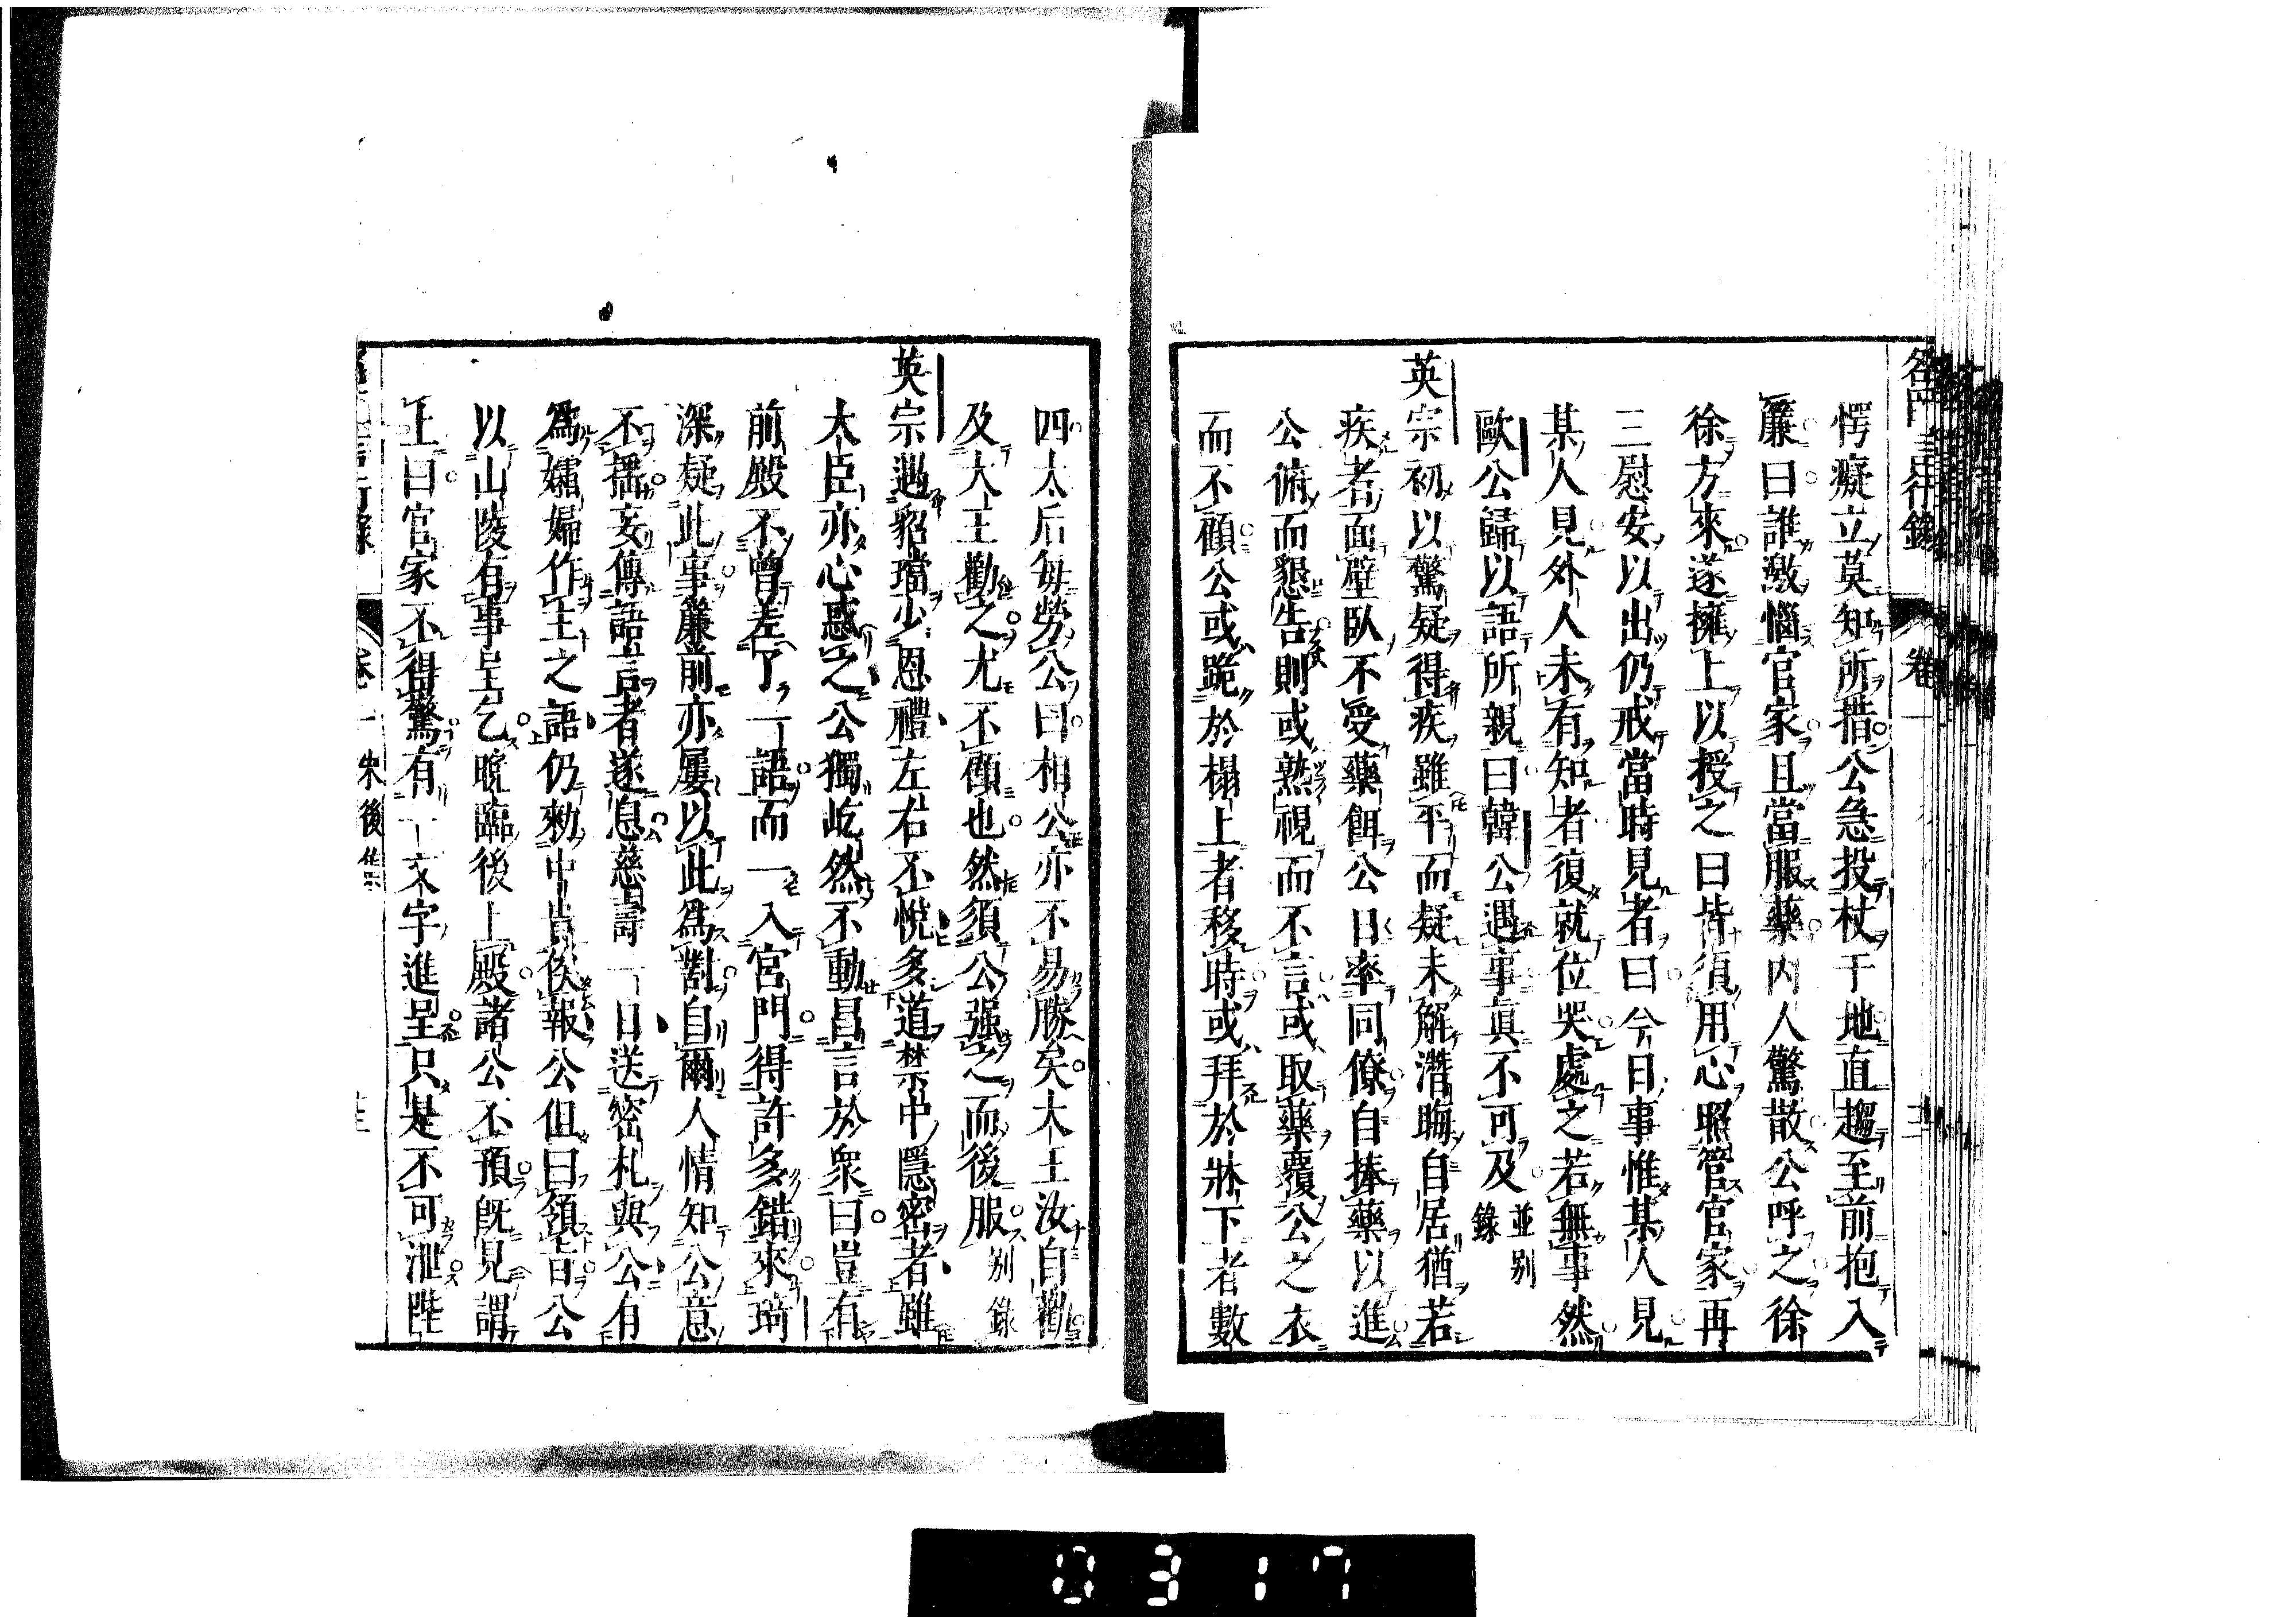 愕癡立莫知所措公急投杖于地直趨至前抱入
簾曰誰激惱官家且當服藥内人驚散公呼之徐
徐方來遂擁上以授之曰皆須用心照管官家再
三慰安以出仍戒當時見者曰今日事惟某人見
某人見外人未有知者復就位哭處之若無事然
歐公歸以語所親曰韓公遇事真不可及並别録
英宗初以驚疑得疾雖平而疑未解潛晦自居猶若
疾者面壁臥不受藥餌公日率同僚自捧藥以進
公俯而懇告則或熟視而不言或取藥覆公之衣
而不顧公或跪於榻上者移時或拜於牀下者數
四太后每勞公曰相公亦不易勝矣大王汝自勸
及大王勸之尤不顧也然須公强之而後服别録
英宗遇貂璫少恩禮左右不悅多道禁中隱密者雖
大臣亦心惑之公獨屹然不動昌言於衆曰豈有
前殿不曾差了一語而一入宮門得許多錯來琦
深疑此事簾前亦屢以此爲對自爾人情知公意
不搖妄傳語言者遂息慈壽一日送密札與公有
爲孀婦作主之語仍勑中貴俟報公但曰領旨公
以山陵有事呈乞晚臨後上殿諸公不預旣見謂
上曰官家不得驚有一文字進呈只是不可泄陛
卷一 朱後集
0317